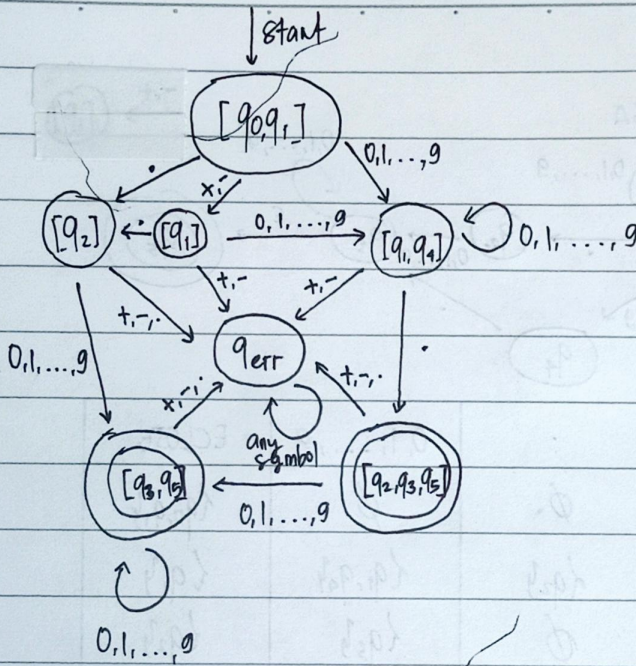 start
[q0,q1]
.
x,-
0,1...,9
[q2]
.
[q1]
0,1,...,9
[q1,q4]
0,1,...,9
+,-,.
+,-
+,-
qerr
0,1,...,9
.
x,-,.
any
symbol
+,-,.
[q3,q5]
0,1,...,9
[q2,q3,q5]
0,1,...,9